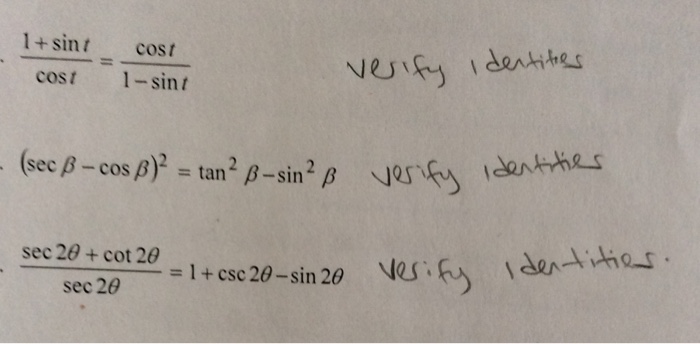 (1 + sin t)/(cos t) = (cos t)/(1 − sin t) verify identities
(sec β − cos β)² = tan² β − sin² β verify identities
(sec 2θ + cot 2θ)/(sec 2θ) = 1 + csc 2θ − sin 2θ verify identities.